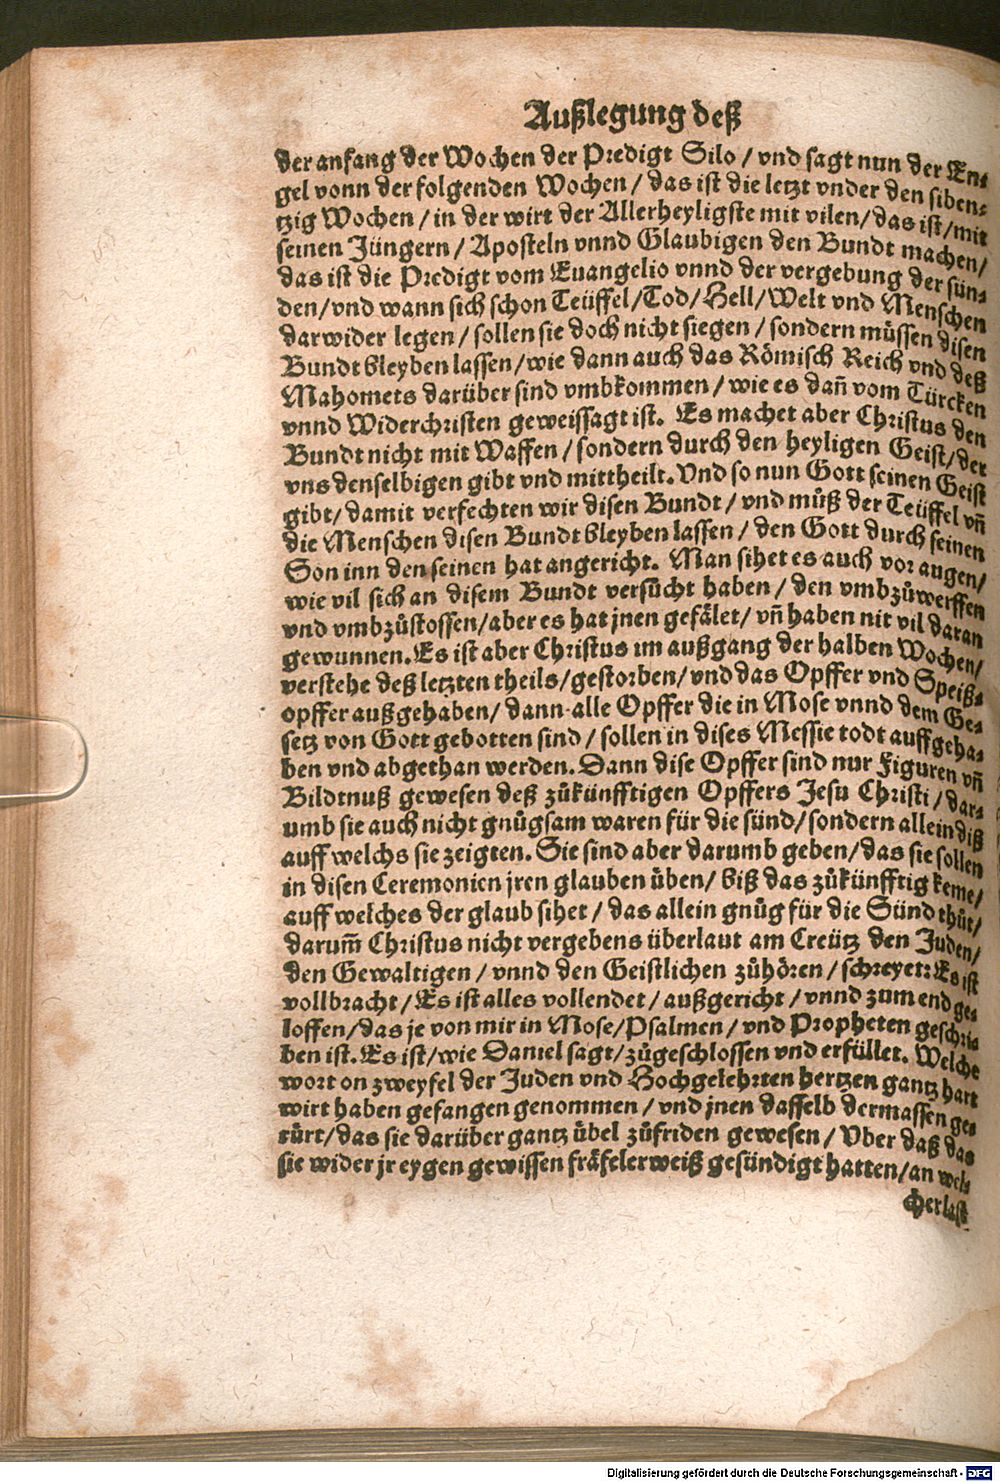 Außlegung deß
der anfang der Wochen der Predigt Silo / vnd sagt nun der En-
gel vonn der folgenden Wochen / das ist die letzt vnder den siben-
tzig Wochen / in der wirt der Allerheyligste mit vilen / das ist / mit
seinen Jüngern / Aposteln vnnd Glaubigen den Bundt machen /
das ist die Predigt vom Euangelio vnnd der vergebung der sün-
den / vnd wann sich schon Teüffel / Tod / Hell / Welt vnd Menschen
darwider legen / sollen sie doch nicht siegen / sondern müssen disen
Bundt bleyben lassen / wie dann auch das Römisch Reich vnd deß
Mahomets darüber sind vmbkommen / wie es dañ vom Türcken
vnnd Widerchristen geweissagt ist. Es machet aber Christus den
Bundt nicht mit Waffen / sondern durch den heyligen Geist / der
vns denselbigen gibt vnd mittheilt. Vnd so nun Gott seinen Geist
gibt / damit verfechten wir disen Bundt / vnd můß der Teüffel vñ
die Menschen disen Bundt bleyben lassen / den Gott durch seinen
Son inn den seinen hat angericht. Man sihet es auch vor augen /
wie vil sich an disem Bundt versůcht haben / den vmbzůwerffen
vnd vmbzůstossen / aber es hat jnen gefälet / vñ haben nit vil daran
gewunnen. Es ist aber Christus im außgang der halben Wochen /
verstehe deß letzten theils / gestorben / vnd das Opffer vnd Speiß-
opffer außgehaben / dann alle Opffer die in Mose vnnd dem Ge-
setz von Gott gebotten sind / sollen in dises Messie todt auffgeha-
ben vnd abgethan werden. Dann dise Opffer sind nur Figuren vñ
Bildtnuß gewesen deß zůkünfftigen Opffers Jesu Christi / dar-
umb sie auch nicht gnůgsam waren für die sünd / sondern allein diß
auff welchs sie zeigten. Sie sind aber darumb geben / das sie sollen
in disen Ceremonien jren glauben üben / biß das zůkünfftig keme /
auff welches der glaub sihet / das allein gnůg für die Sünd thůt /
darum̃ Christus nicht vergebens überlaut am Creütz den Juden /
den Gewaltigen / vnnd den Geistlichen zůhören / schreyet: Es ist
vollbracht / Es ist alles vollendet / außgericht / vnnd zum end ge-
loffen / das je von mir in Mose / Psalmen / vnd Propheten geschri-
ben ist. Es ist / wie Daniel sagt / zůgeschlossen vnd erfüllet. Welche
wort on zweyfel der Juden vnd Hochgelehrten hertzen gantz hart
wirt haben gefangen genommen / vnd jnen dasselb dermassen ge-
rürt / das sie darüber gantz übel zůfriden gewesen / Vber daß das
sie wider jr eygen gewissen fräfelerweiß gesündigt hatten / an wel-
cher last
Digitalisierung gefördert durch die Deutsche Forschungsgemeinschaft - DFG